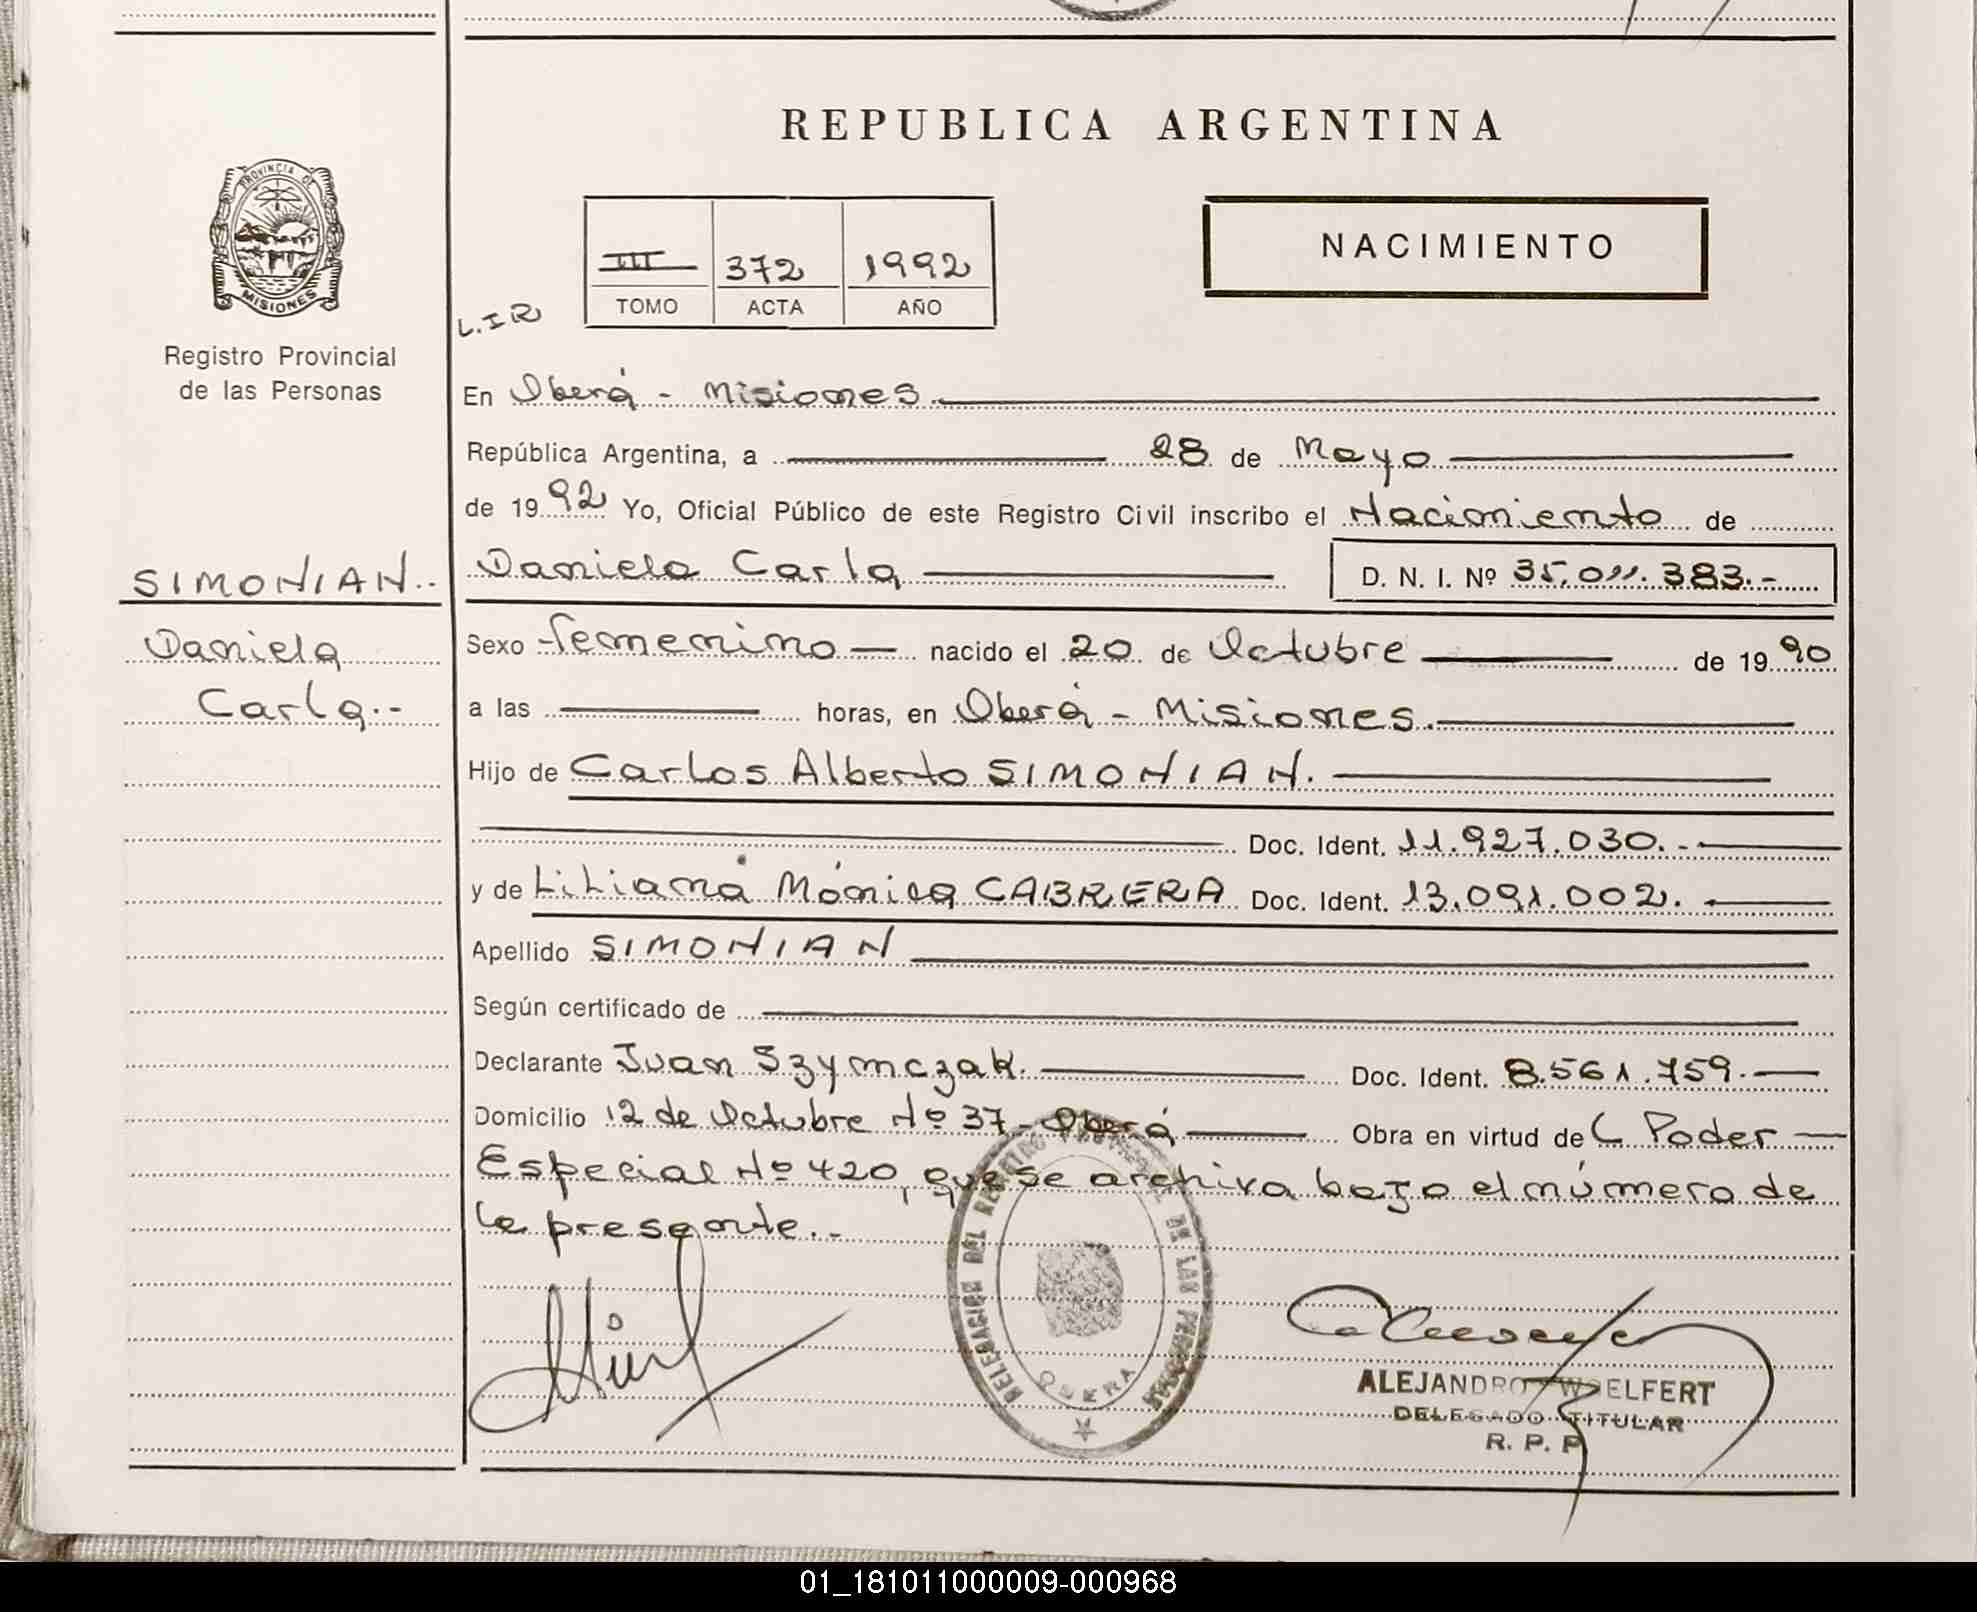 REPUBLICA ARGENTINA
PROVINCIA DE
MISIONES
Registro Provincial
de las Personas
III 372 1992
TOMO ACTA AÑO
NACIMIENTO
L.IR
En Oberá - Misiones.
República Argentina, a 28 de Mayo
de 1992 Yo, Oficial Público de este Registro Civil inscribo el Nacimiento de
SIMONIAN..
Daniela
Carla.-
Daniela Carla D. N. I. Nº 35.011.383.-
Sexo femenino nacido el 20 de Octubre de 1990
a las horas, en Oberá - Misiones.
Hijo de Carlos Alberto SIMONIAN.
Doc. Ident. 11.927.030.-
y de Liliana Mónica CABRERA Doc. Ident. 13.091.002.
Apellido SIMONIAN
Según certificado de
Declarante Juan Szymczak. Doc. Ident. 8.561.759.
Domicilio 12 de Octubre Nº 37 - Oberá Obra en virtud de Poder
Especial Nº 420, que se archiva bajo el número de
la presente.-
DELEGACION DEL REGISTRO DE LAS PERSONAS
OBERA
ALEJANDRO WOELFERT
DELEGADO TITULAR
R. P. P
01_181011000009-000968